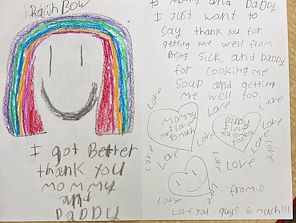 RainBow
I got Better
thank you
mommy
and
DaDDy
to mommy and Daddy
I Just want to
say thank you for
getting me well from
Being sick, and Daddy
for cooking me
soup and getting
me well too.
Love
Love
Love
Love
Love
Love
mommy
Love
Love
Love
Love
Love
from:
Love you guys so much!!!